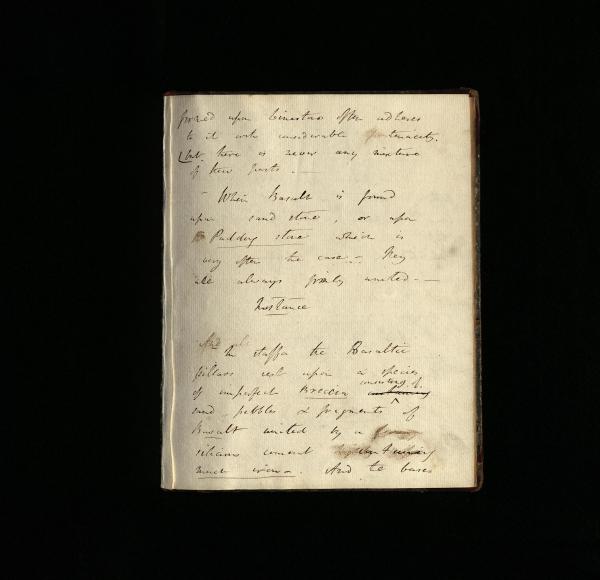 found upon limestone often adheres
to it with considerable tenacity.
but there is never any mixture
of their parts. —
— When Basalt is found
upon sand stone, or upon
Pudding stone which is
very often the case - they
are always firmly united -—
Instance
In staffa the Basaltic
pillars rest upon a species
of imperfect Breccia consisting of
sand pebbles & fragments of
Basalt united by a
silicious cement
much worn. And the bases